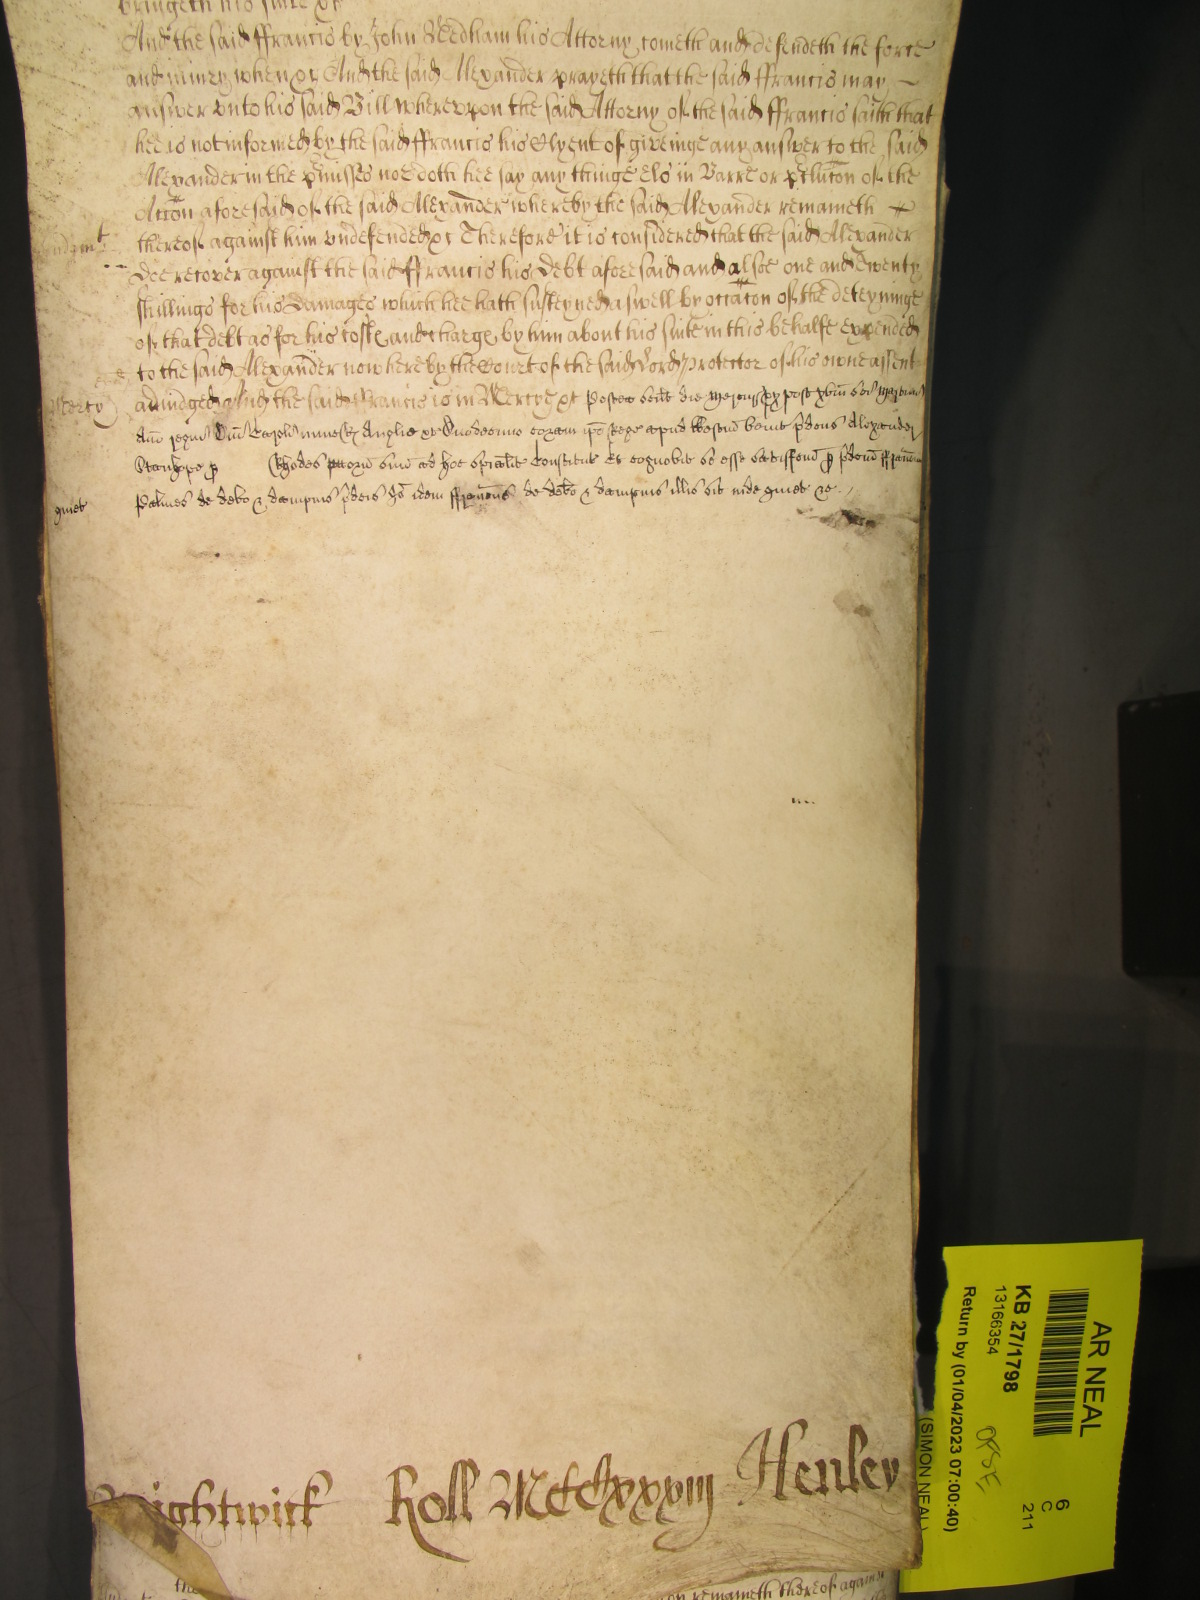 bringeth his suite &c
And the said ffrancis by John Needham his Attorny cometh and defendeth the force
and iniury when &c And the said Alexander prayeth that the said ffrancis may
answer vnto his said Bill wherevpon the said Attorny of the said ffrancis saith that
hee is not informed by the said ffrancis his Clyent of giveinge any answer to the said
Alexander in the p̄misses noe doth hee say any thinge els in Barre or p̄clucōn of the
Accōn aforesaid of the said Alexander whereby the said Alexander remaineth
thereof against him vndefended &c Therefore it is considered that the said Alexander
Doe recover against the said ffrancis his Debt aforesaid and alsoe one and Twenty
shillings for his Damages which hee hath susteyned aswell by occācon of the deteyninge
of that debt as for his costs and charges by him about his suite in this behalfe expended
to the said Alexander now here by the Court of the said Lord Protector of his owne assent
Mercy adiudged And the said ffrancis is in Mercy &c Postea scilt die
Dñi Caroli Anglie &c Duodecimo coram ipo Rege apud Westm̄ venit p̄dcus Alexander
Stanhope p Rhodes attorn̄ suū ad hoc spialit Constitut Et cognovit se esse satisfcm̄ p p̄dcm̄ ffranc̄
Palmes de debo & dampnis p̄dcis Iō idem ffranc̄us de debo & dampnis illis sit inde quiet &c
quiet
Wightwick Roll Mccclxxxiij Henley
AR NEAL
KB 27/1798
13166354
Return by (01/04/2023 07:00:40)
(SIMON NEAL)
6
C
211
remaineth thereof against